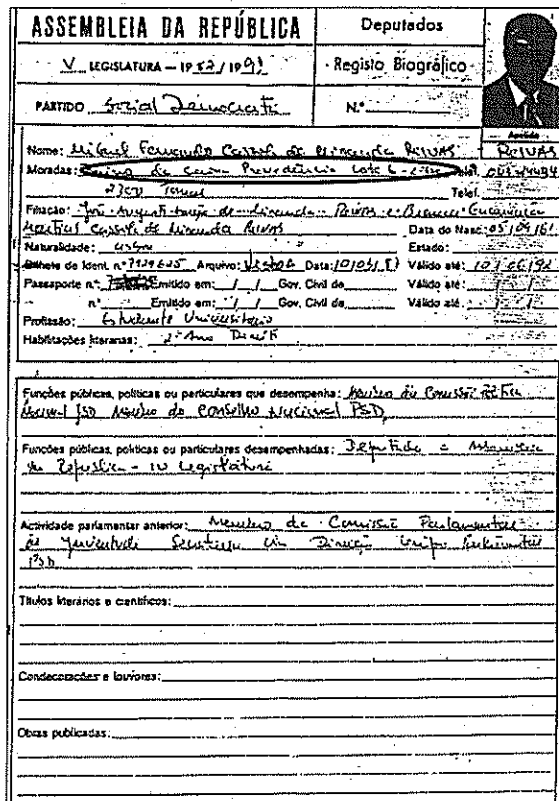 ASSEMBLEIA DA REPÚBLICA
Deputados
V LEGISLATURA — 1987/1991
Registo Biográfico
PARTIDO Social Democrata
N.º
Apelido
Nome: Miguel Fernando Miranda RELVAS
RELVAS
Moradas: Lote 6 Telef.
2300 Tomar Telef.
Filiação: José Miranda Relvas e
Martins Miranda Relvas Data do Nasc: 05/09/61
Naturalidade: Lisboa Estado:
Bilhete de Ident. nº Arquivo: Lisboa Data: Válido até:
Passaporte nº Emitido em: / / Gov. Civil de Válido até:
nº Emitido em: / / Gov. Civil de Válido até:
Profissão: Estudante Universitário
Habilitações literárias: 2º Ano Direito
Funções públicas, políticas ou particulares que desempenha: Membro da Comissão Política
Nacional JSD Membro do Conselho Nacional PSD
Funções públicas, políticas ou particulares desempenhadas: Deputado à Assembleia
da República - IV Legislatura
Actividade parlamentar anterior: Membro da Comissão Parlamentar
de Juventude Direcção Grupo Parlamentar
PSD
Títulos literários e científicos:
Condecorações e louvores:
Obras publicadas: